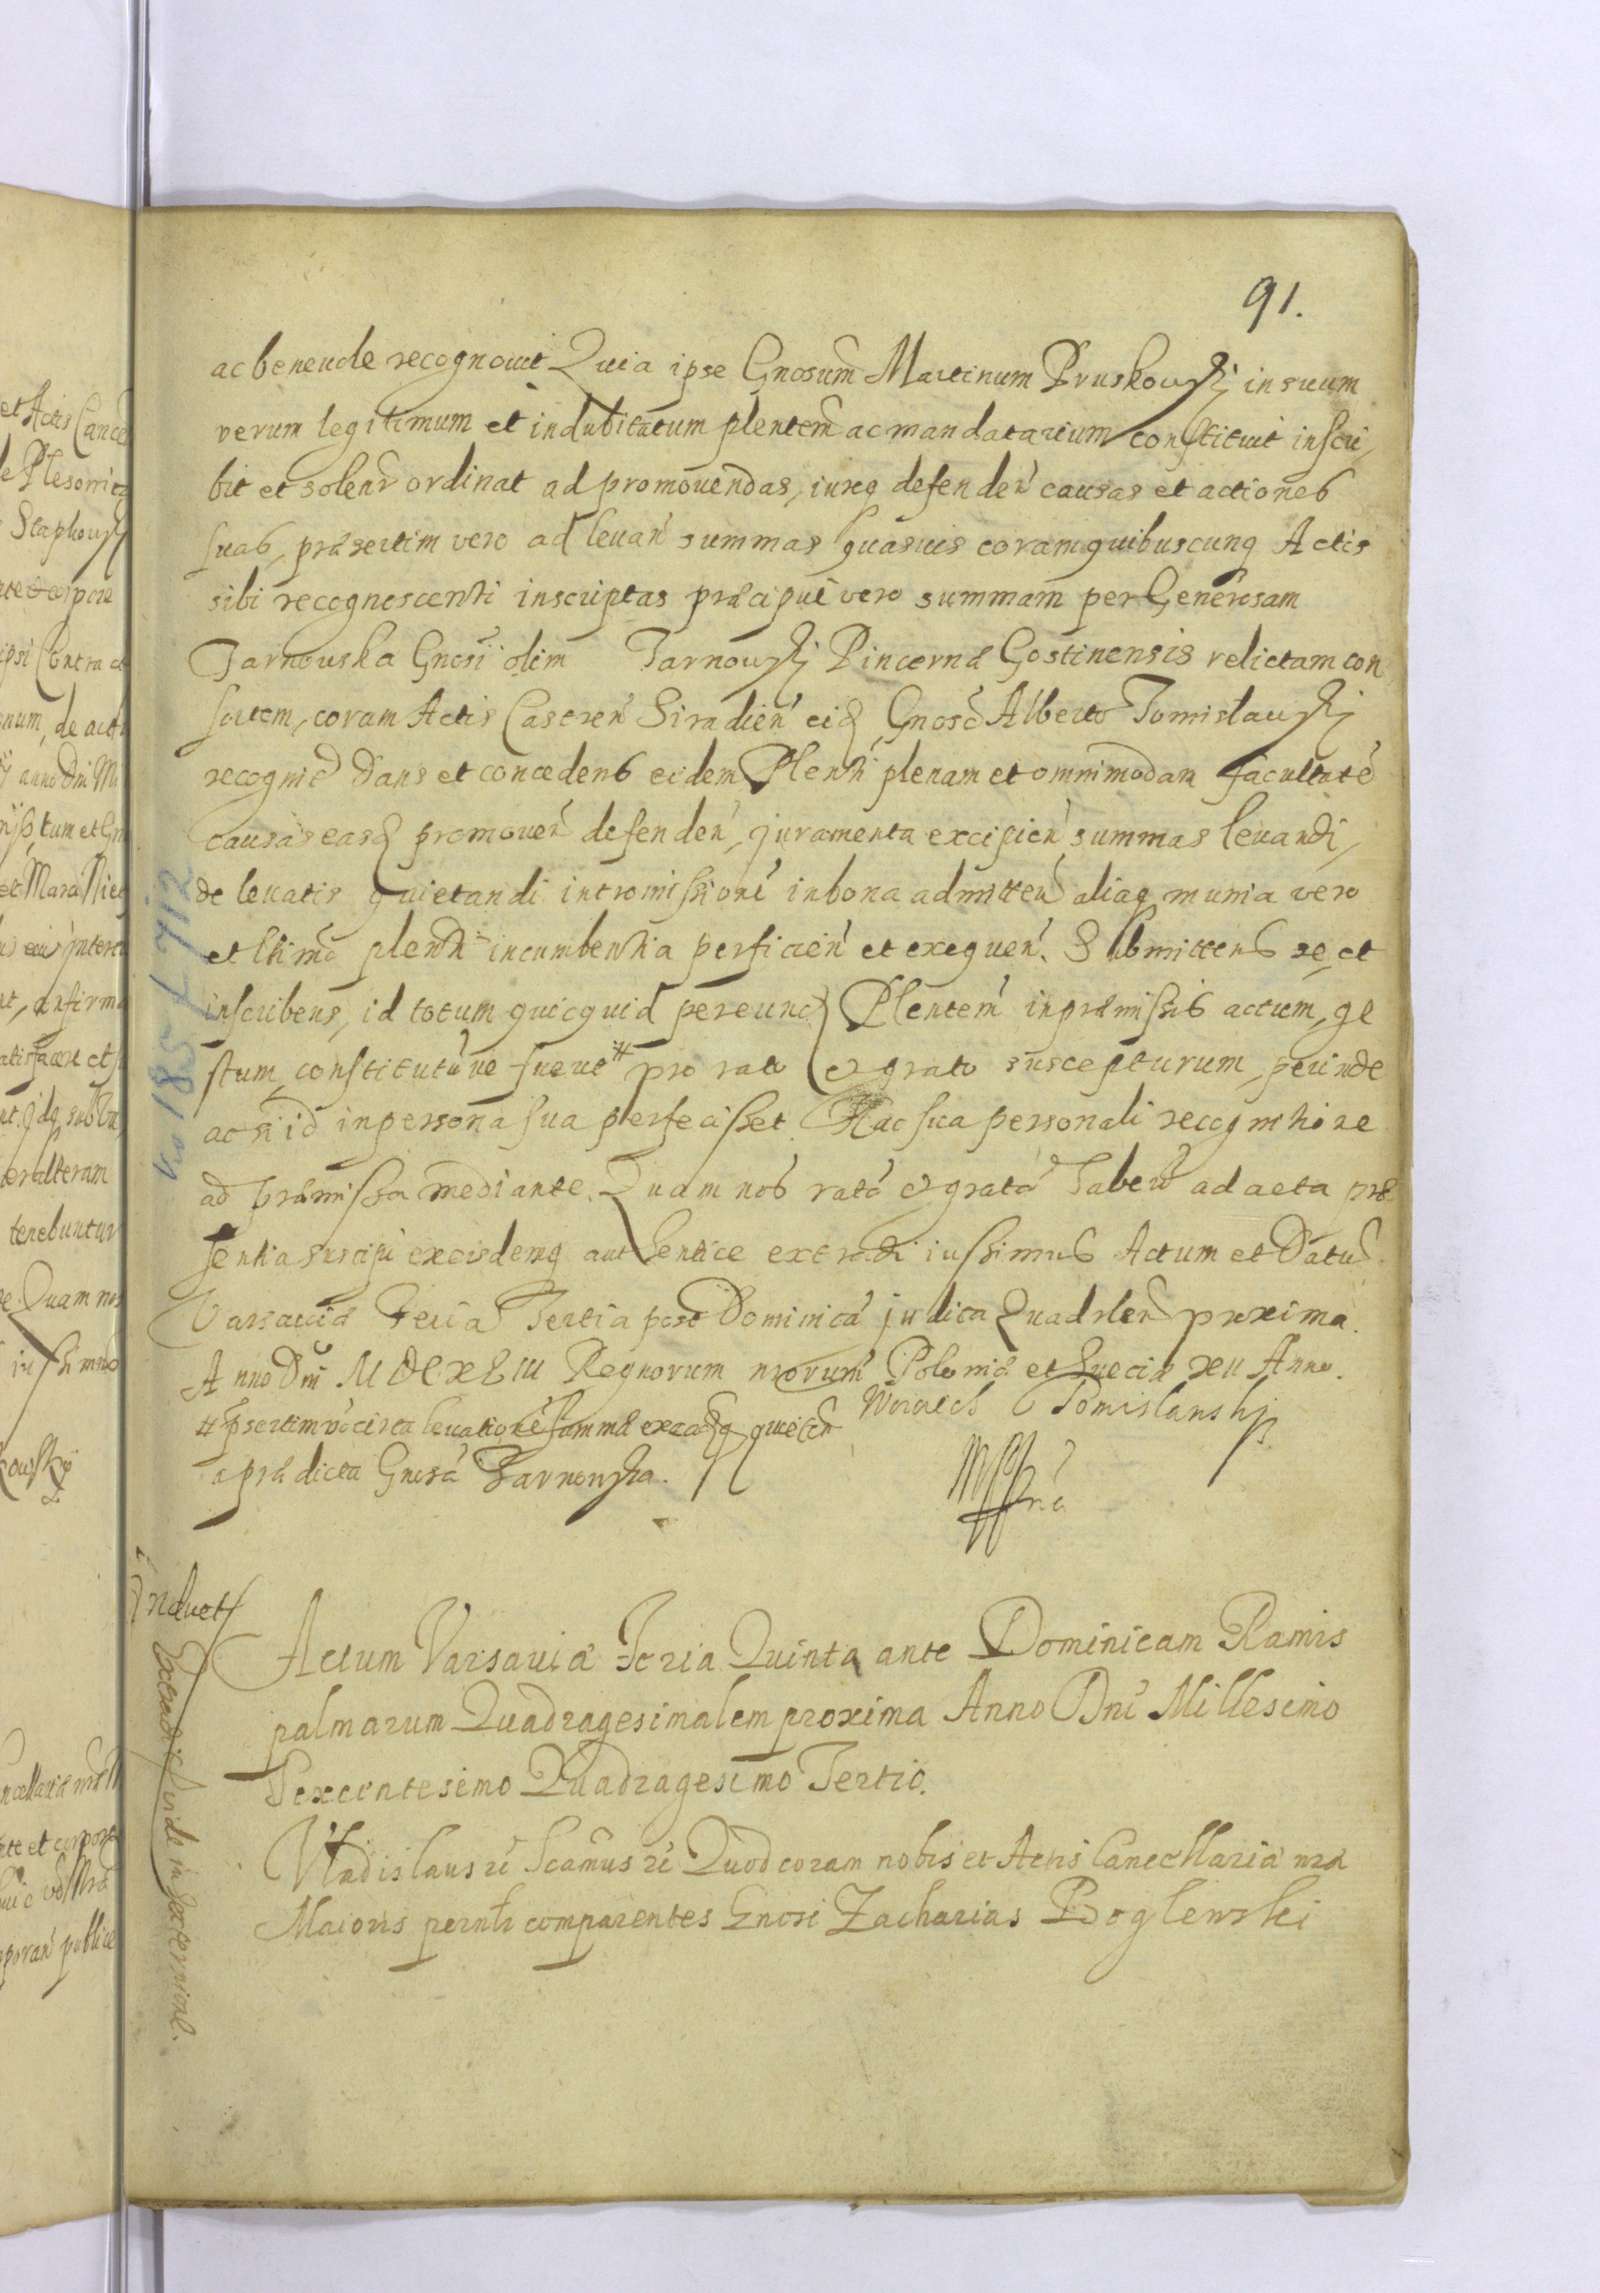 91.
ac benevole recognovit Quia ipse Gnosum Martinum Pruskowski in suum
verum legitimum et indubitatum plentem ac mandatarium constituit inscri,
bit et solenr ordinat ad promovendas, iureq defenden causas et actiones
suas, præsertim vero ad levan summas quasvis coram quibuscunq Actis
sibi recognoscenti inscriptas præcipue vero summam per Generosam
Tarnowska Gnosi olim Tarnowski Pincernæ Gostinensis relictam con
sortem, coram Actis Castren Siradien eid Gnoso Alberto Tomislawski
recognit Dans et concedens eidem Plenti plenam et omnimodam facultate
causas easd promoven defenden, juramenta excipien summas levandi,
de levatis quietandi intromissione in bona admitten aliaq munia vero
et ltimo plenti incumbentia perficien et exequen. Submittens se, et
inscribens, id totum quicquid per eund Plentem in præmissis actum, ge
stum, constitutuve fuerit # pro rato et grato suscepturum, perinde
ac si id in persona sua perfecisset. Hac sua personali recognitione
ad præmissa mediante. Quam nos rata et grata haben ad acta præ
sentia suscipi ex eisdemq authentice extradi iussimus Actum et Datu
Varsaviæ Feria Tertia post Dominica judica Quadrlem proxima.
Anno Dni MDCXLIII Regnorum nrorum Poloniæ et Sueciæ XII Anno.
# psertim vo circa levatione summæ ex eadq quietan
a prædicta Gnosa Tarnowska.
Woiciech Tomislanski
mppria
Induct
Extradi fide in Extermine.
Actum Varsaviæ Feria Quinta ante Dominicam Ramis
palmarum Quadragesimalem proxima Anno Dni Millesimo
Sexcentesimo Quadragesimo Tertio.
Vladislaus rc Scamus rc Quod coram nobis et Actis Cancellariæ nræ
Maioris pernlr comparentes Gnosi Zacharias Boglewski